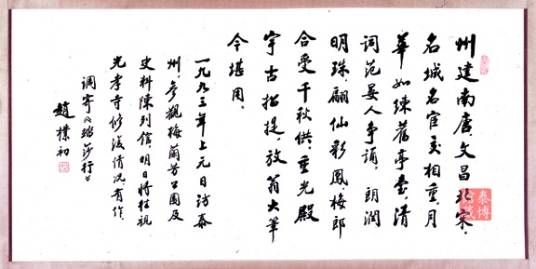 州建南唐，文昌北宋，
名城名宦交相重。月
華如練舊亭臺，清
词范晏人争诵。朗润
明珠，翩仙彩凤，梅郎
合受千秋供。重光殿
宇古招提，放翁大筆
今堪用。
一九九三年上元日访泰
州，参觀梅蘭芳公園及
史料陳列館，明日将往視
光孝寺修復情况，有作，
调寄《踏莎行》
趙樸初
泰博